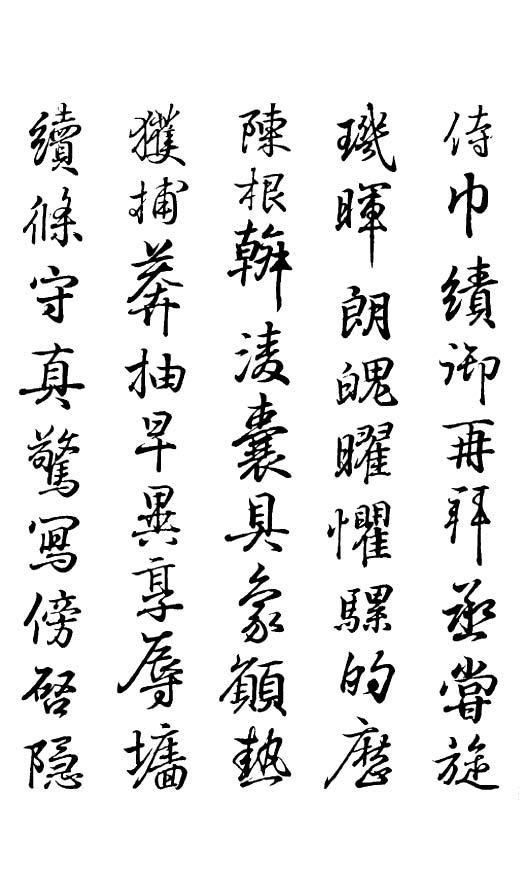 侍巾績御再拜丞嘗旋
璣暉朗魄曜懼騾的歷
陳根凌囊具象顧熱
獲捕莽抽早異享辱墻
續條守真驚寫傍啓隱